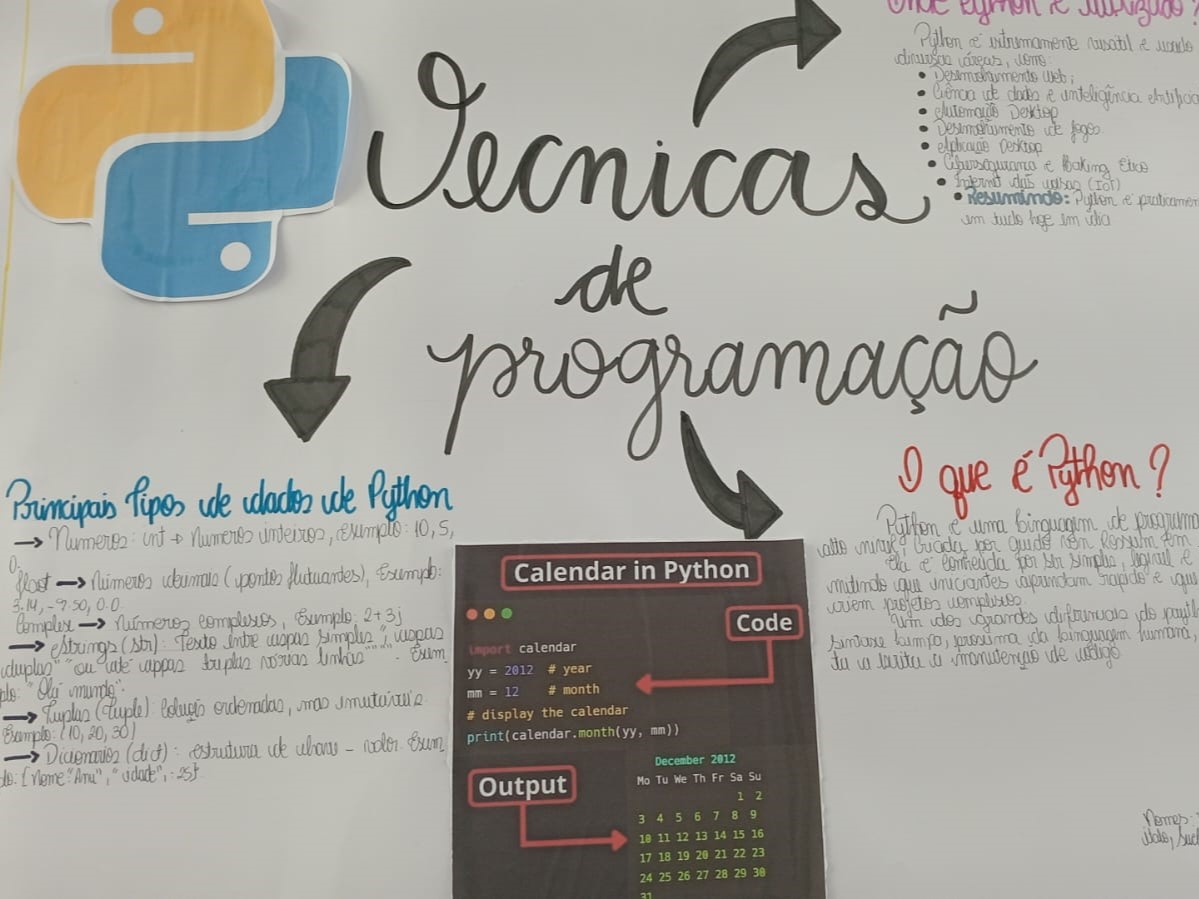 Tecnicas
de
programação
Onde Python é utilizado?
Python é extremamente versátil e usado
diversas áreas, como:
• Desenvolvimento Web;
• Ciência de dados e inteligência Artificial
• Automação Desktop
• Desenvolvimento de jogos
• Aplicação Desktop
• Cibersegurança e Haking Etico
• Internet das coisas (IoT)
• Resumindo: Python é praticamen
em tudo hoje em dia
Principais Tipos de dados de Python
→ Numeros: int → Numeros inteiros, exemplo: 10, 5,
0.
float → Números (pontos flutuantes), Exemplo:
3.14, -9.50, 0.0.
Complex → Números complexos, Exemplo: 2+3j
→ Strings (str): Texto entre aspas simples '' aspas
duplas" " ou até aspas triplas várias linhas""" . Exem
plo: "Olá mundo".
→ Tuplas (Tuple): Coleções ordenadas, mas imutaivis.
Exemplo: (10, 20, 30)
→ Dicionarios (dict): estrutura de chave - valor. Exem
plo: {nome:"Ana", "idade",: 25}
O que é Python?
Python é uma linguagem de programa
alto nível, criada por guido van Rossum em
ela é conhecida por ser simples, legível e
mitindo que iniciantes aprendam rapido e que
criem projetos complexos.
Um dos grandes diferenciais do
sintaxe limpa, proxima da linguagem humana,
ta a escrita a manutenção de código
Calendar in Python
Code
import calendar
yy = 2012 # year
mm = 12 # month
# display the calendar
print(calendar.month(yy, mm))
Output
December 2012
Mo Tu We Th Fr Sa Su
1 2
3 4 5 6 7 8 9
10 11 12 13 14 15 16
17 18 19 20 21 22 23
24 25 26 27 28 29 30
31
Nomes: